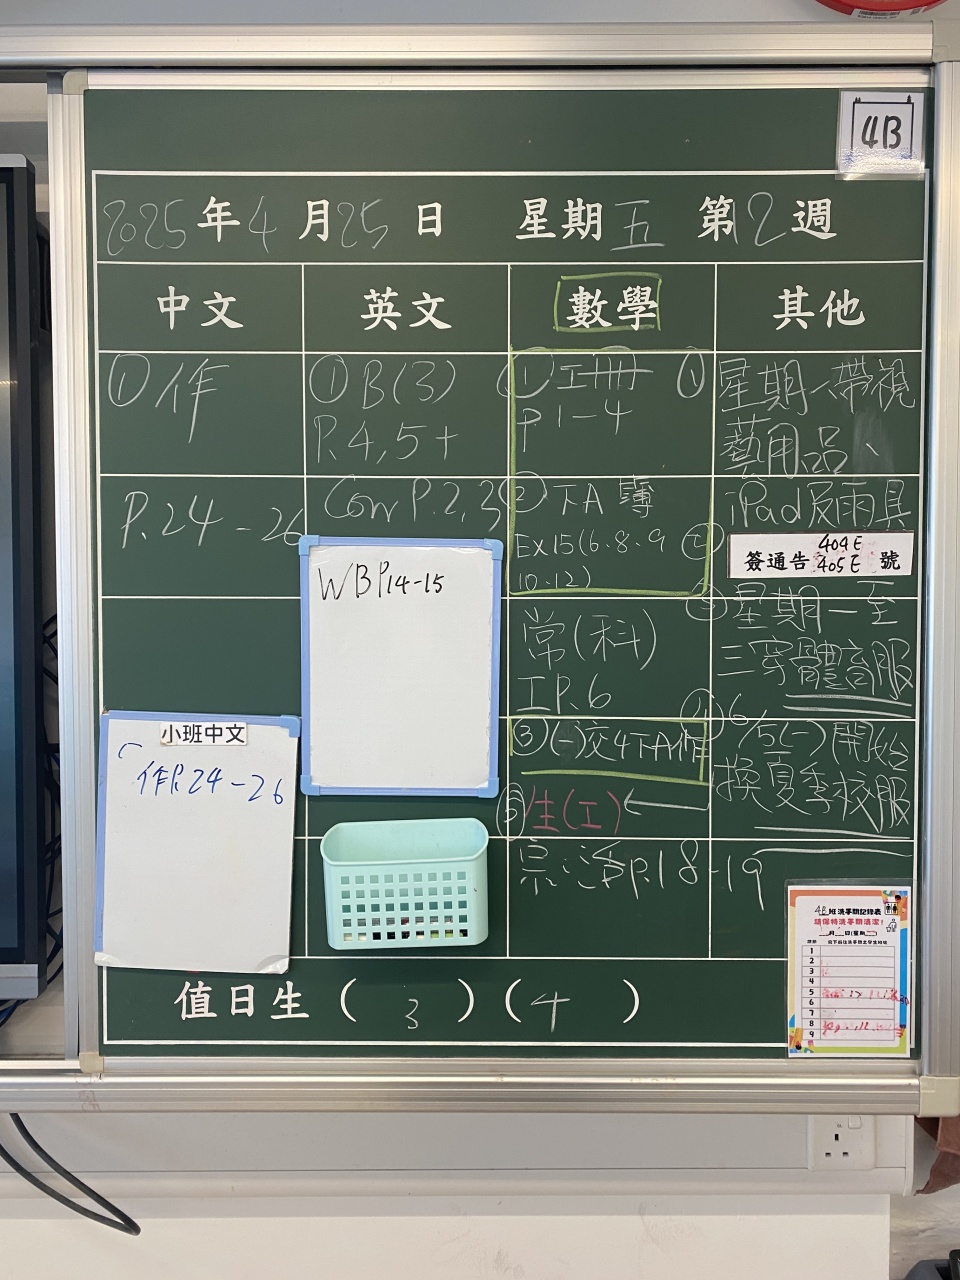 4B
2025年4月25日 星期五 第12週
中文
英文
數學
其他
①作
P.24-26
小班中文
作P.24-26
①B(3)
P.4,5+
Corr P.2,3
WB P14-15
①工冊
P.1-4
②下A簿
Ex15(6.8.9
10.12)
常(科)
工P.6
③(一)交4下A作
⑤生(工)←
宗活P.18-19
①星期一帶視
藝用品、
iPad及雨具
②簽通告 404E 405E 號
③星期一至
三穿體育服
④6/5(一)開始
換夏季校服
4B班洗手間記錄表
請保持洗手間清潔!
1
2
3
4
5
6
7
8
9
值日生(3)(4)